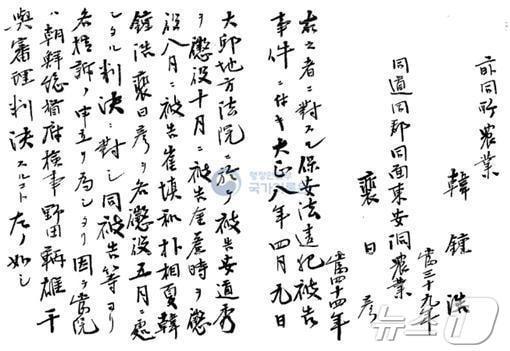 前同所農業
韓鍾浩
當三十九年
同道同郡同面東安洞農業
裵日彦
當四十四年
右之者ニ對スル保安法違犯被告
事件ニ付キ大正八年四月九日
大邱地方法院ニ於テ被告安道秀
ヲ懲役十月ニ被告金麗時ヲ懲
役八月ニ被告崔塡和朴相夏韓
鍾浩裵日彦ヲ各懲役五月ニ處
シタル判決ニ對シ同被告等ヨリ
各控訴ノ申立ヲ為シタリ因テ當院
ハ朝鮮總督府檢事野田鞆雄干
與審理判決スルコト左ノ如シ